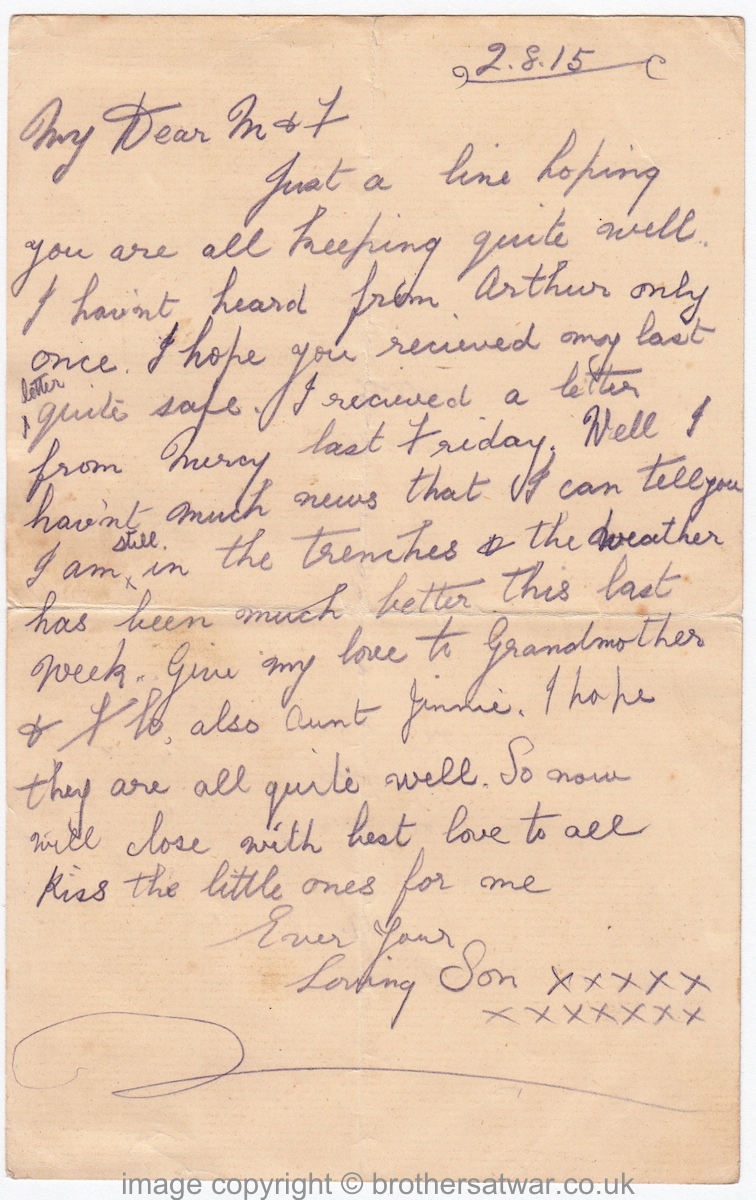 2.8.15
My Dear M & F
Just a line hoping
you are all keeping quite well.
I hav'nt heard from Arthur only
once. I hope you recieved my last
letter
quite safe. I recieved a letter
from Mercy last Friday. Well I
hav'nt much news that I can tell you
still
I am x in the trenches & the weather
has been much better this last
week. Give my love to Grandmother
& also Aunt Jinnie. I hope
they are all quite well. So now
will close with best love to all
Kiss the little ones for me
Ever Your
Loving Son xxxxx
xxxxxxx
image copyright © brothersatwar.co.uk